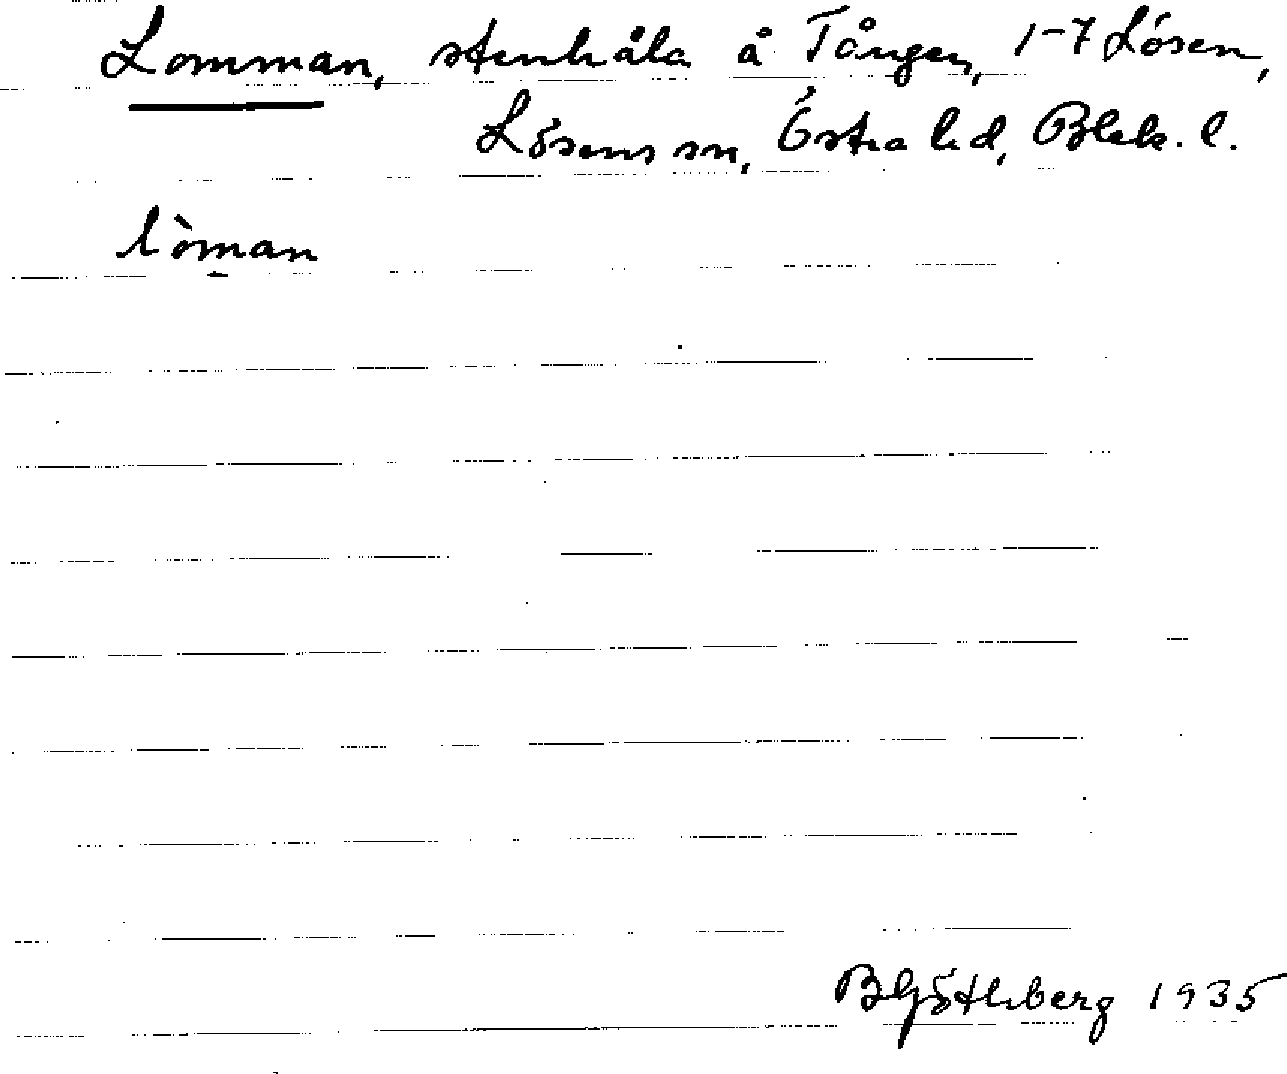 Lomman, stenhåla å Tången, 1-7 Lösen,
Lösens sn, Östra hd, Blek. l.
lòman
B Götlberg 1935